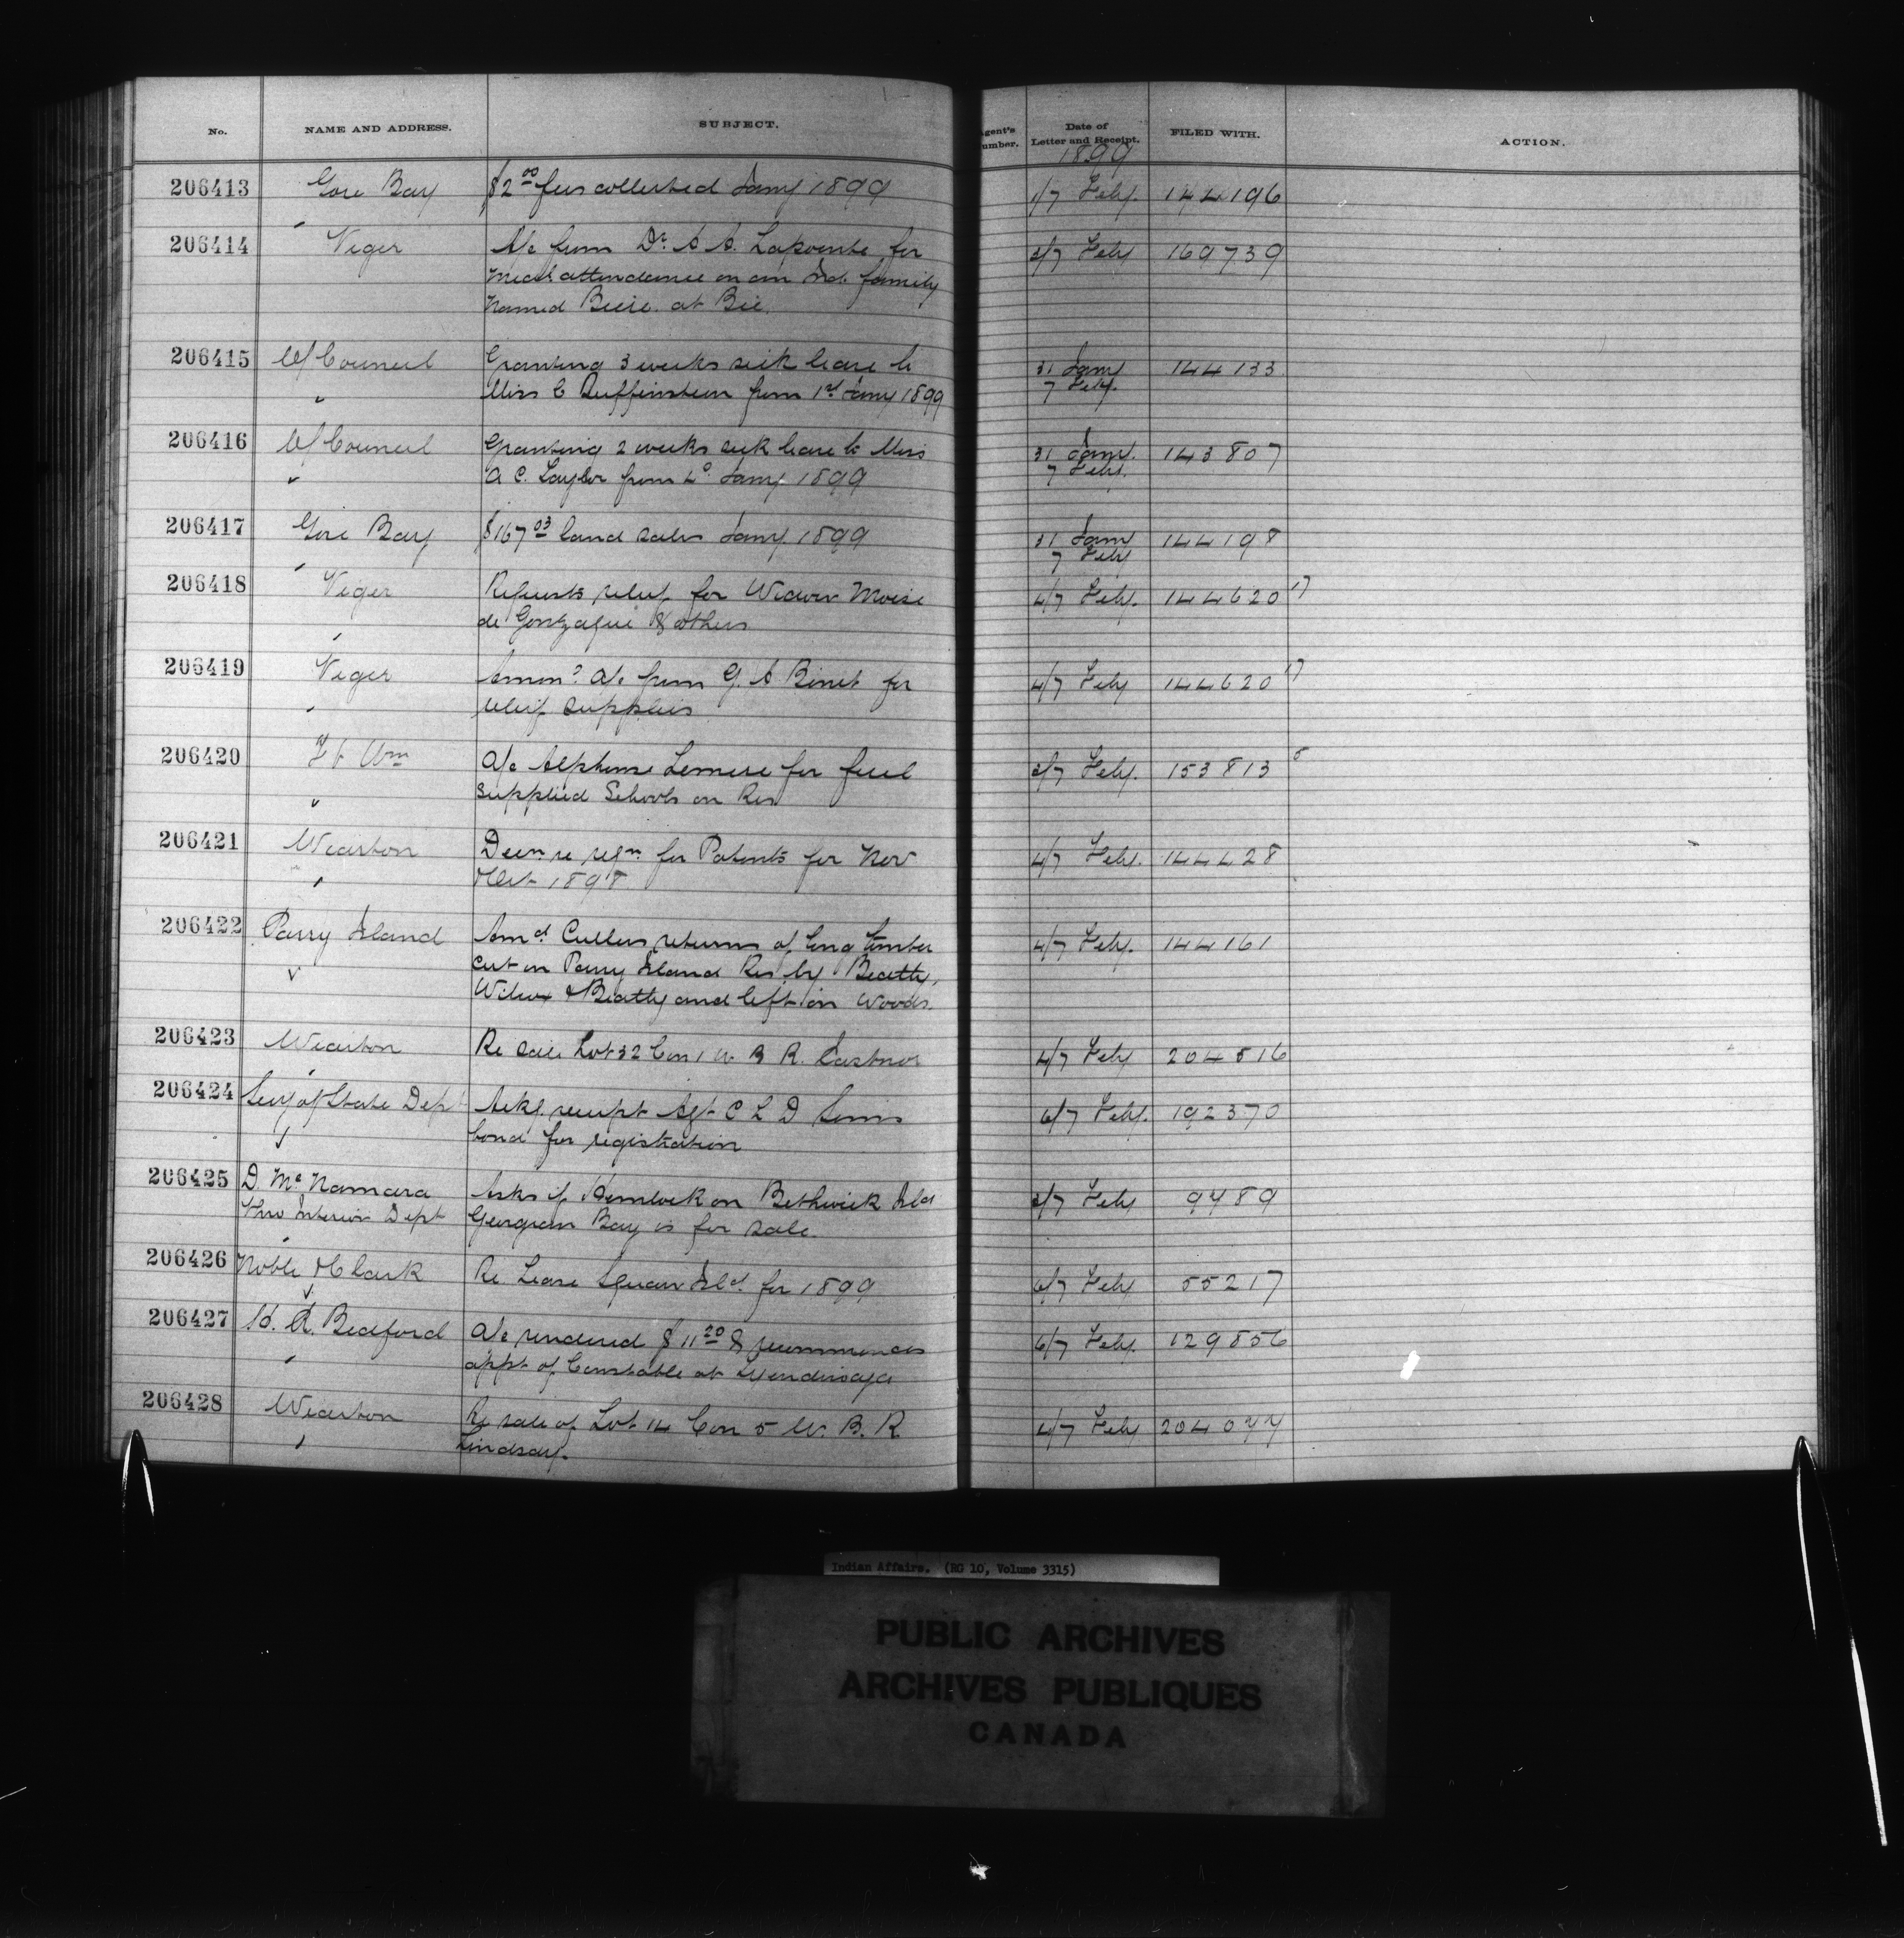 No. NAME AND ADDRESS. SUBJECT. Agent's Number. Date of Letter and Receipt. FILED WITH. ACTION.
1899
206413 Gore Bay $2 00 fees collected Jany 1899 1/7 Feby. 144196
206414 Viger A/c from Dr. A. Lapointe for 3/7 Feby 169739
Medl attendance on an Ind. family
named at Bic.
206415 Of Council Granting 3 weeks sick leave to 31 Jany 144133
Miss C Reiffenstein from 1st Jany 1899 7 Feby.
206416 Of Council Granting 2 weeks sick leave to Miss 31 Jany. 143807
A C. Taylor from 4o. Jany. 1899 7 Feby.
206417 Gore Bay $167 03 land sales Jany. 1899 31 Jany 144198
7 Feby
206418 Viger Requests relief for Widow Moise 4/7 Feby. 144620 17
de Gonzague & others
206419 Viger a/c from G. A Binet for 4/7 Feby 144620 17
relief supplies
206420 Ft Wm A/c Alphonse Lemire for fuel 3/7 Feby. 153813 5
supplied Schools on Res
206421 Wiarton for Patents for Nov 4/7 Feby. 144428
1898
206422 Parry Island Cullers returns of Timber 4/7 Feby. 144161
cut on Parry Island Res by Beatty,
Wilcox & Beatty and left in Woods.
206423 Wiarton Re sale Lot 32 Con 1 W B R. Eastnor 4/7 Feby 204516
206424 Secy of State Dept Ackg. receipt Agt C L D Sims 6/7 Feby. 192370
bond for registration
206425 D. McNamara Asks if Hemlock on Bethwick Ild 3/7 Feby 9489
thro Interior Dept Georgian Bay is for sale.
206426 Noble & Clark Re. Lease Squaw Ild. for 1899 6/7 Feby 55217
206427 H. A. Bedford A/c rendered $11 20 & recommences 6/7 Feby. 129856
appt of Constable at Tyendinaga
206428 Wiarton Re sale of Lot 14 Con 5 W. B. R 4/7 Feby 204044
Lindsay.
Indian Affairs. (RG 10, Volume 3315)
PUBLIC ARCHIVES
ARCHIVES PUBLIQUES
CANADA